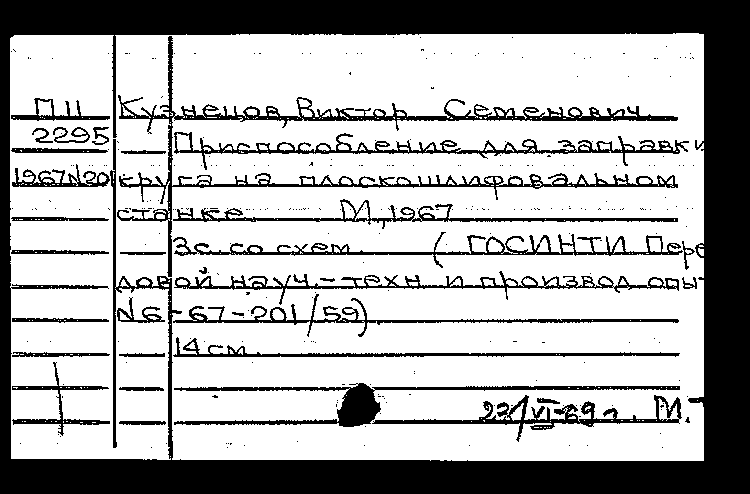 П11 Кузнецов, Виктор Семенович.
2295 Приспособление для заправки
1967N20 круга на плоскошлифовальном
станке. М., 1967
3с. со схем. (ГОСИНТИ Пере
довой науч.-техн и производ опы
N6-67-201/59).
14 см.
М.